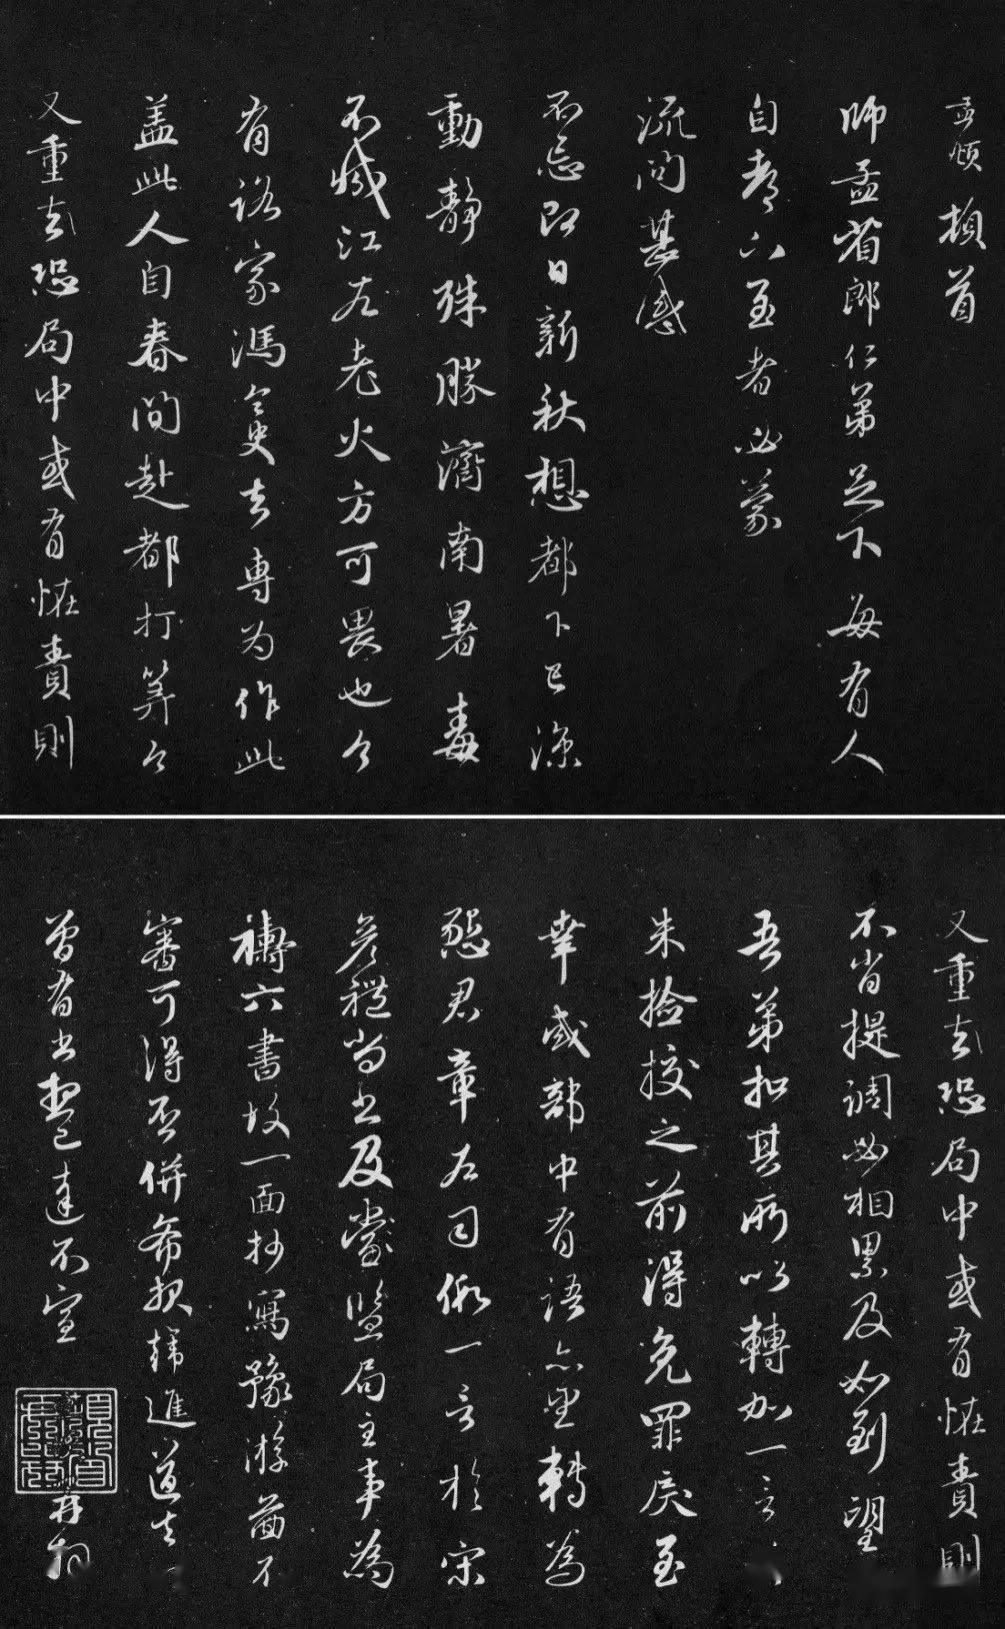 孟頫頓首
師孟省郎仁弟足下每有人
自都下至者必蒙
流問甚感
不忘即日新秋想都下已涼
動靜殊勝濟南暑毒
不減江左老火方可畏也今
有路家馮令史去專為作此
盖此人自春間赴都打算今
又重去恐局中或有恠責則
又重去恐局中或有恠責則
不肖提調必相累及如到望
吾弟扣其所以轉加一言
朱捡挍之前得免罪戾至
幸或部中有語亦望轉為
懇君章左司俶一言於宋
彦禮尚书及當塈局主事為
禱六書故一面抄寫豫游啚不
審可得否併希报緯進道去
曾有书想已達不宣
再拜